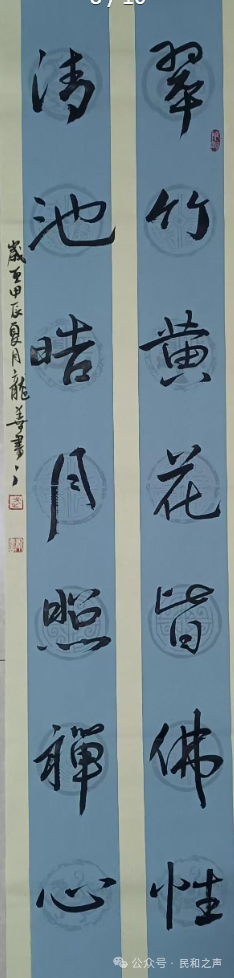 翠竹黄花皆佛性
清池皓月照禅心
歲在甲辰夏月龍善書
公众号·民和之声